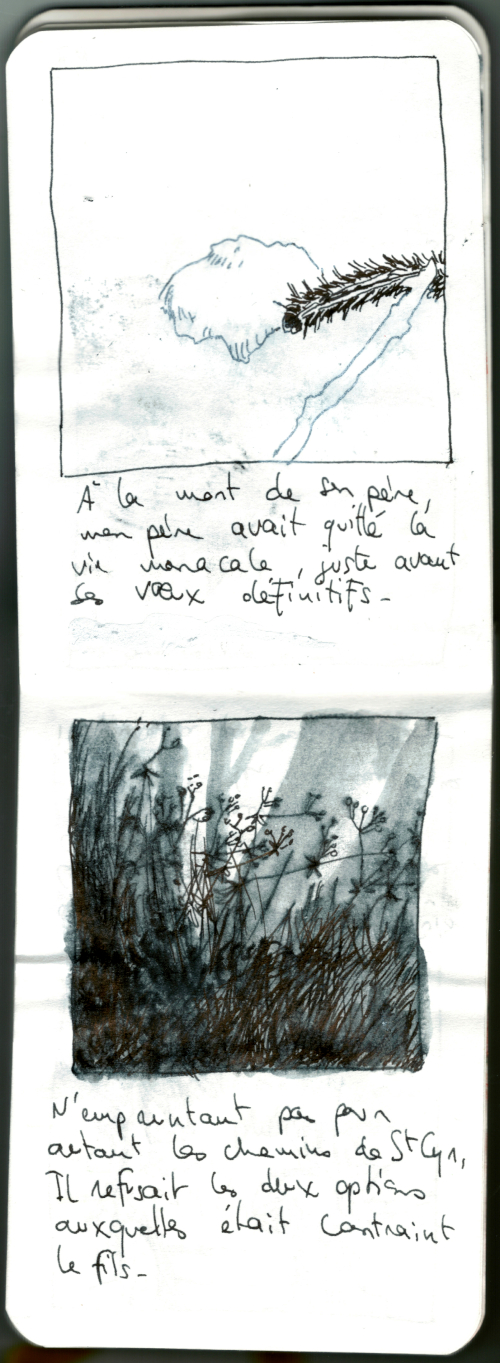 À la mort de son père,
mon père avait quitté la
vie monacale, juste avant
ses vœux définitifs -
N'empruntant pas pour
autant les chemins de St Cyr,
Il refusait les deux options
auxquelles était contraint
le fils -